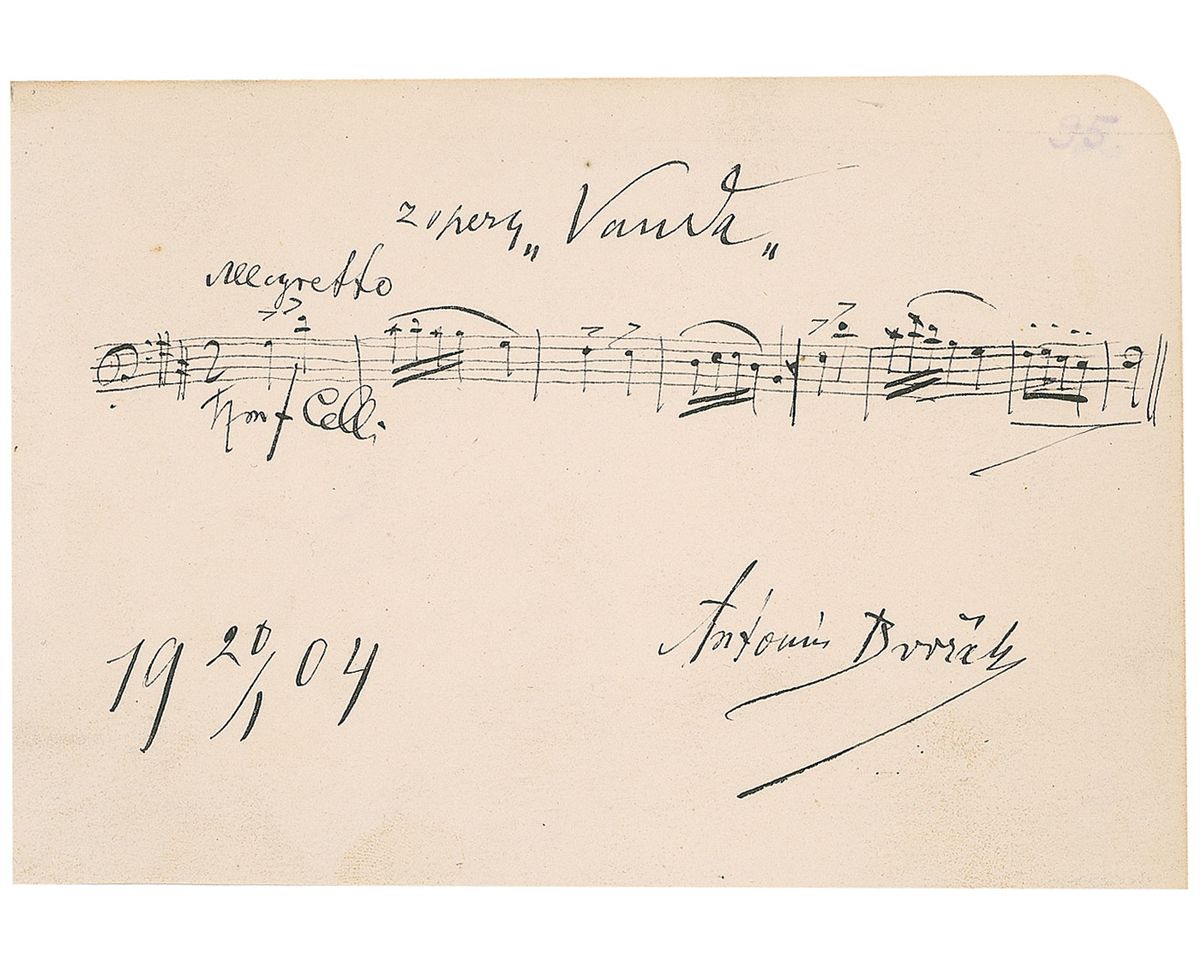 95.
z opery „Vanda„
Allegretto
2
f Celli
19 20/1 04
Antonín Dvořák